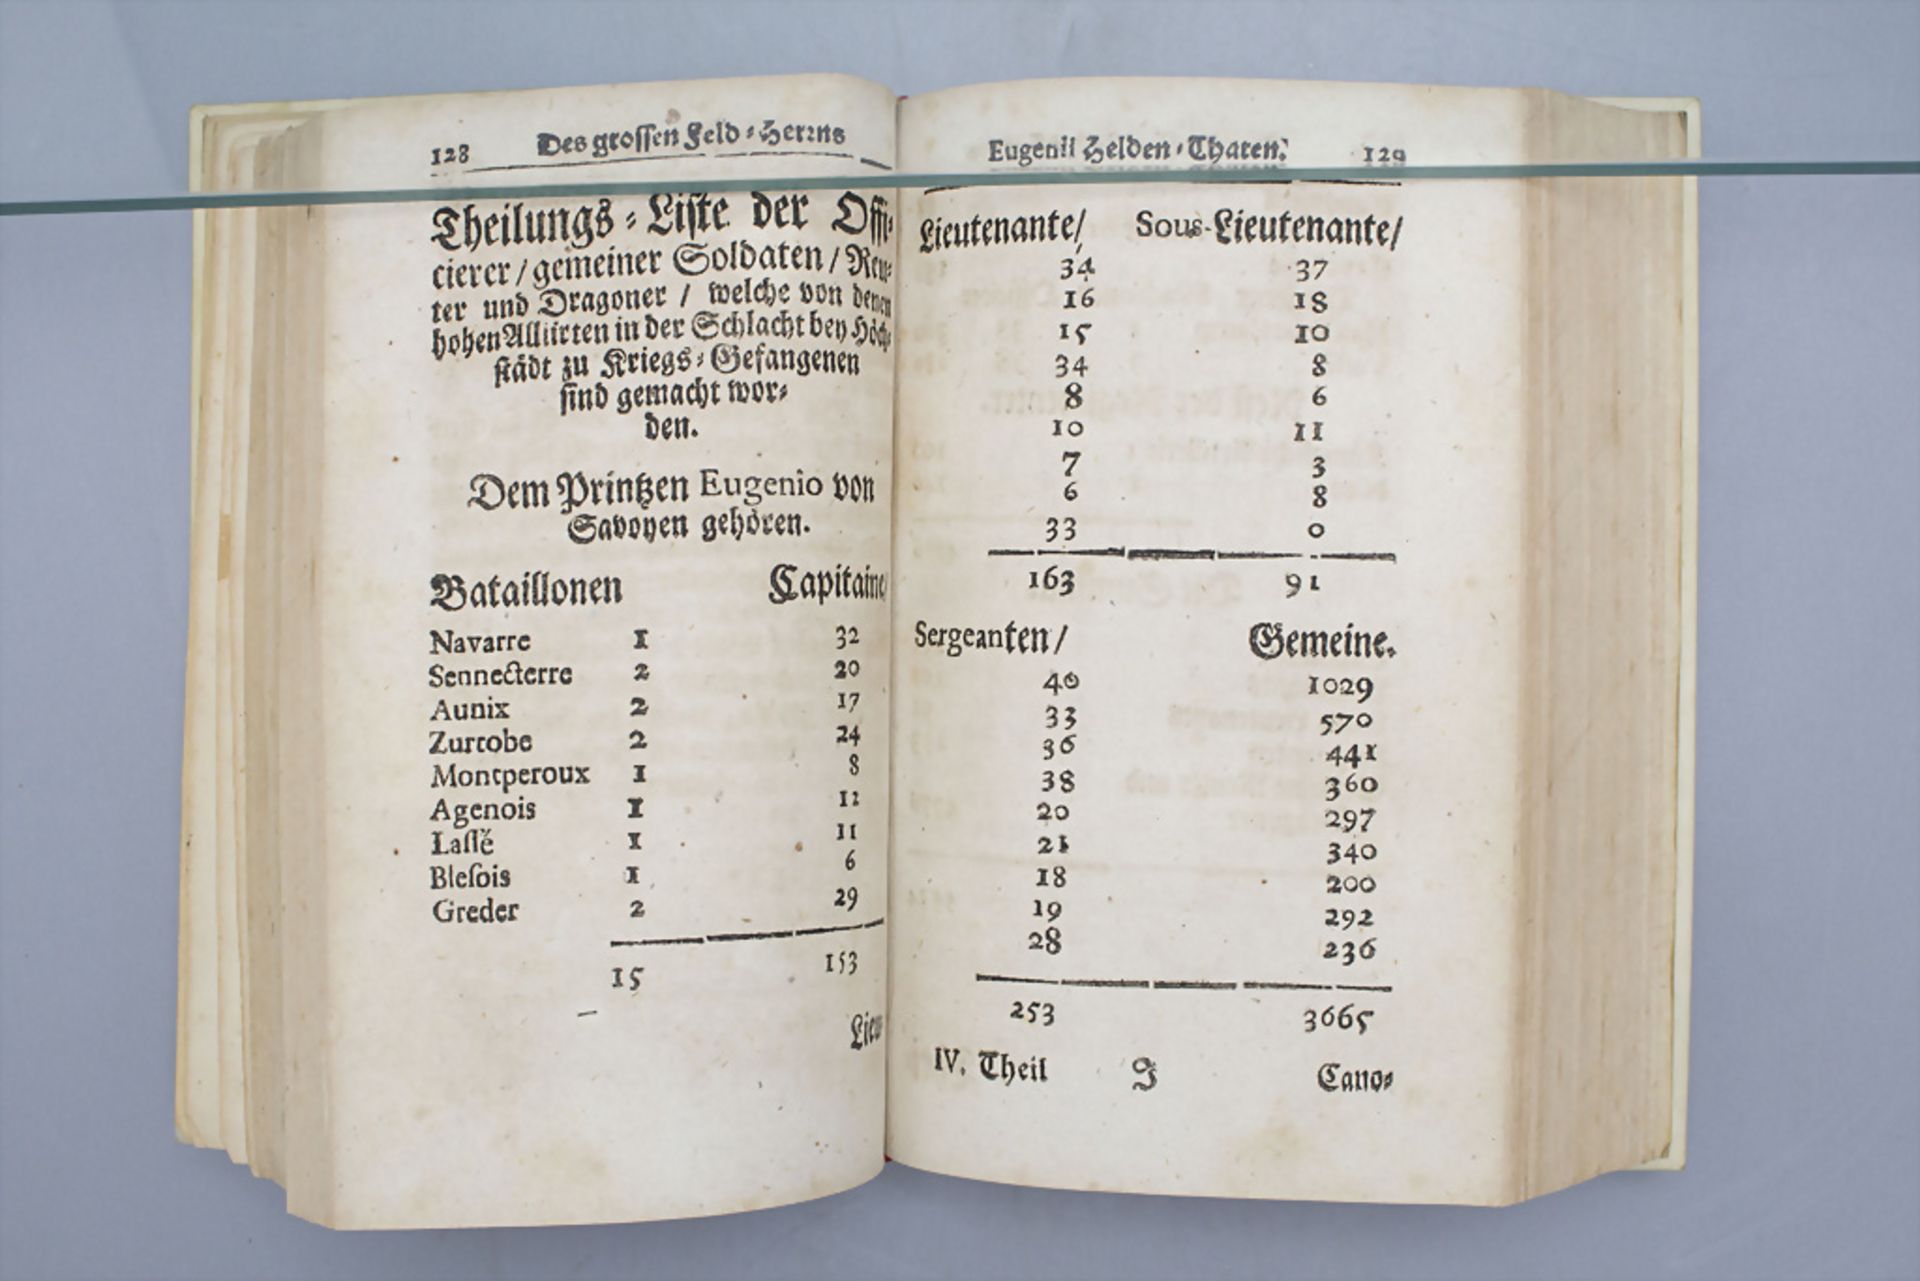 128 Des grossen Feld⸗Herrns
Theilungs⸗Liste der Offi⸗
cierer / gemeiner Soldaten / Reu⸗
ter und Dragoner / welche von denen
hohen Alliirten in der Schlacht bey Höch⸗
städt zu Kriegs⸗Gefangenen
sind gemacht wor⸗
den.
Dem Printzen Eugenio von
Savoyen gehören.
Bataillonen Capitaine/
Navarre 1 32
Sennecterre 2 20
Aunix 2 17
Zurcobe 2 24
Montperoux 1 8
Agenois 1 12
Laſſé 1 11
Bleſois 1 6
Greder 2 29
15 153
Lieu⸗
Eugenii Helden⸗Thaten. 129
Lieutenante/ Sous-Lieutenante/
34 37
16 18
15 10
34 8
8 6
10 11
7 3
6 8
33 0
163 91
Sergeanten/ Gemeine.
40 1029
33 570
36 441
38 360
20 297
21 340
18 200
19 292
28 236
253 3665
IV. Theil J Cano⸗